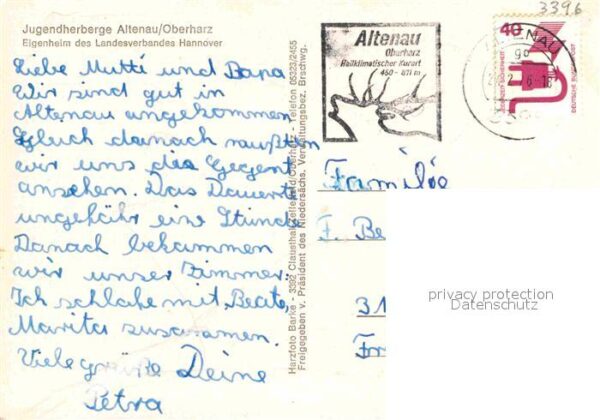 3396
Jugendherberge Altenau/Oberharz
Eigenheim des Landesverbandes Hannover
Liebe Mutti und Papa
Wir sind gut in
Altenau angekommen
Gleich danach mußten
wir uns die Gegent
ansehen. Das Dauert
ungefähr eine Stunde
Danach bekammen
wir unser Zimmer.
Ich schlafe mit, Beate,
Marita zusammen.
Viele grüße Deine
Petra
Harzfoto Barke - 3392 Clausthal-Zellerfeld/Oberharz - Telefon 05323/2455
Freigegeben v. Präsident des Niedersächs. Verwaltungsbez. Brschwg.
Altenau
Oberharz
Heilklimatischer Kurort
450 - 871 m
ALTENAU
40
DEUTSCHE BUNDESPOST
Familie
F. Be
31
privacy protection
Datenschutz